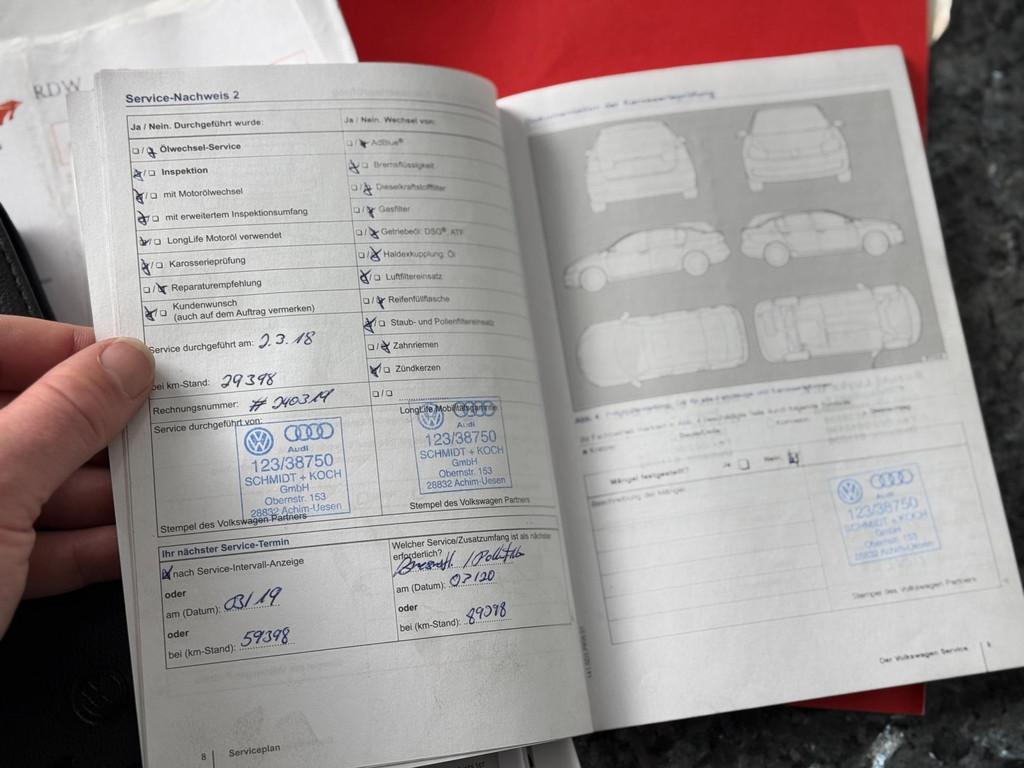 RDW
Service-Nachweis 2
Ja / Nein. Durchgeführt wurde:
Ölwechsel-Service
Inspektion
mit Motorölwechsel
mit erweitertem Inspektionsumfang
LongLife Motoröl verwendet
Karosserieprüfung
Reparaturempfehlung
Kundenwunsch
(auch auf dem Auftrag vermerken)
Ja / Nein. Wechsel von:
AdBlue®
Bremsflüssigkeit
Dieselkraftstofffilter
Gasfilter
Getriebeöl: DSG®, ATF
Haldexkupplung: Öl
Luftfiltereinsatz
Reifenfüllflasche
Staub- und Pollenfiltereinsatz
Zahnriemen
Zündkerzen
Service durchgeführt am: 2.3.18
bei km-Stand: 29398
Rechnungsnummer: # 240314
Service durchgeführt von:
Audi
123/38750
SCHMIDT + KOCH
GmbH
Obernstr. 153
28832 Achim-Uesen
Stempel des Volkswagen Partners
LongLife Mobilitätsgarantie
Audi
123/38750
SCHMIDT + KOCH
GmbH
Obernstr. 153
28832 Achim-Uesen
Stempel des Volkswagen Partners
Ihr nächster Service-Termin
nach Service-Intervall-Anzeige
oder
am (Datum): 03/19
oder
bei (km-Stand): 59398
Welcher Service/Zusatzumfang ist als nächster
erforderlich?
am (Datum): 03/20
oder
bei (km-Stand): 89398
8 Serviceplan
Dokumentation der Karosserieprüfung
Mängel festgestellt? Ja Nein
Beschreibung der Mängel:
Audi
123/38750
SCHMIDT + KOCH
GmbH
Obernstr. 153
28832 Achim-Uesen
Stempel des Volkswagen Partners
Der Volkswagen Service